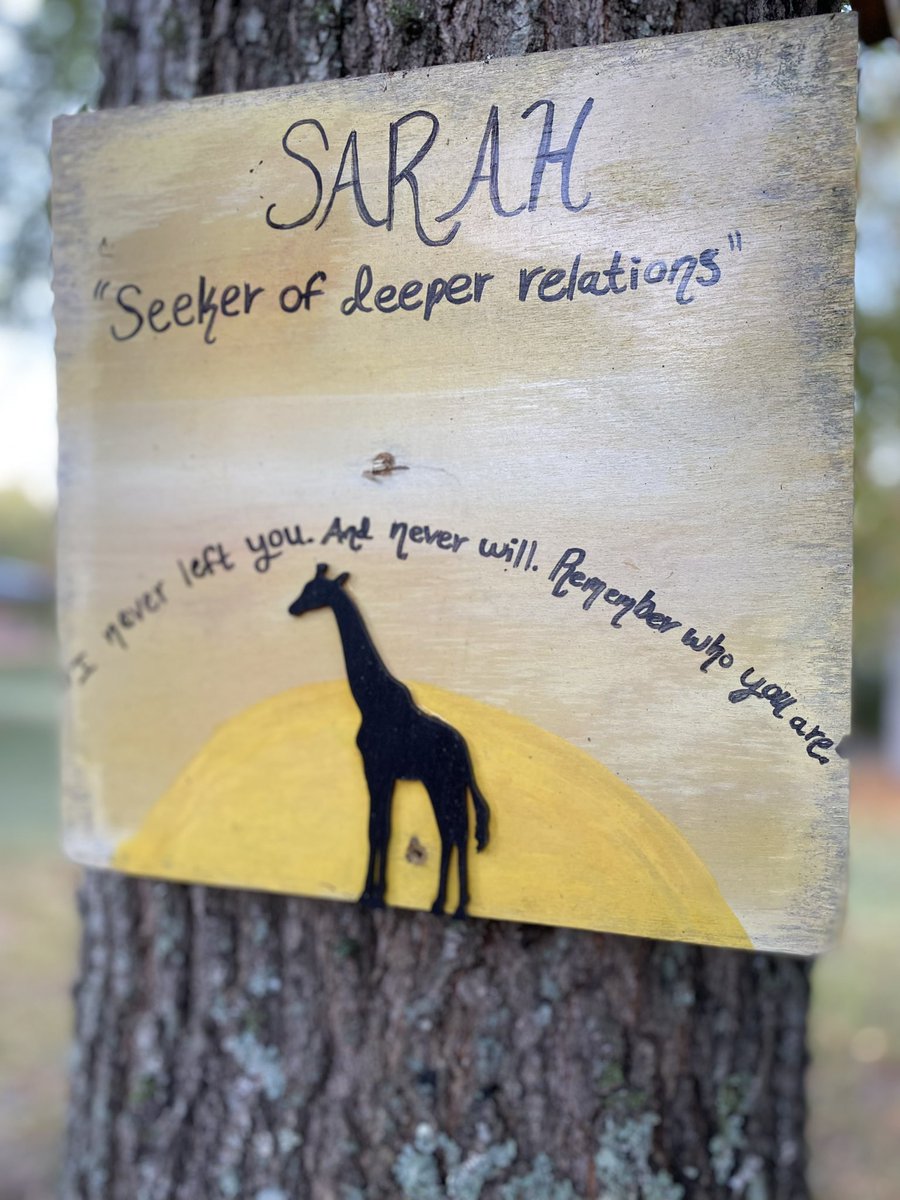 SARAH
"Seeker of deeper relations"
I never left you. And never will. Remember who you are.